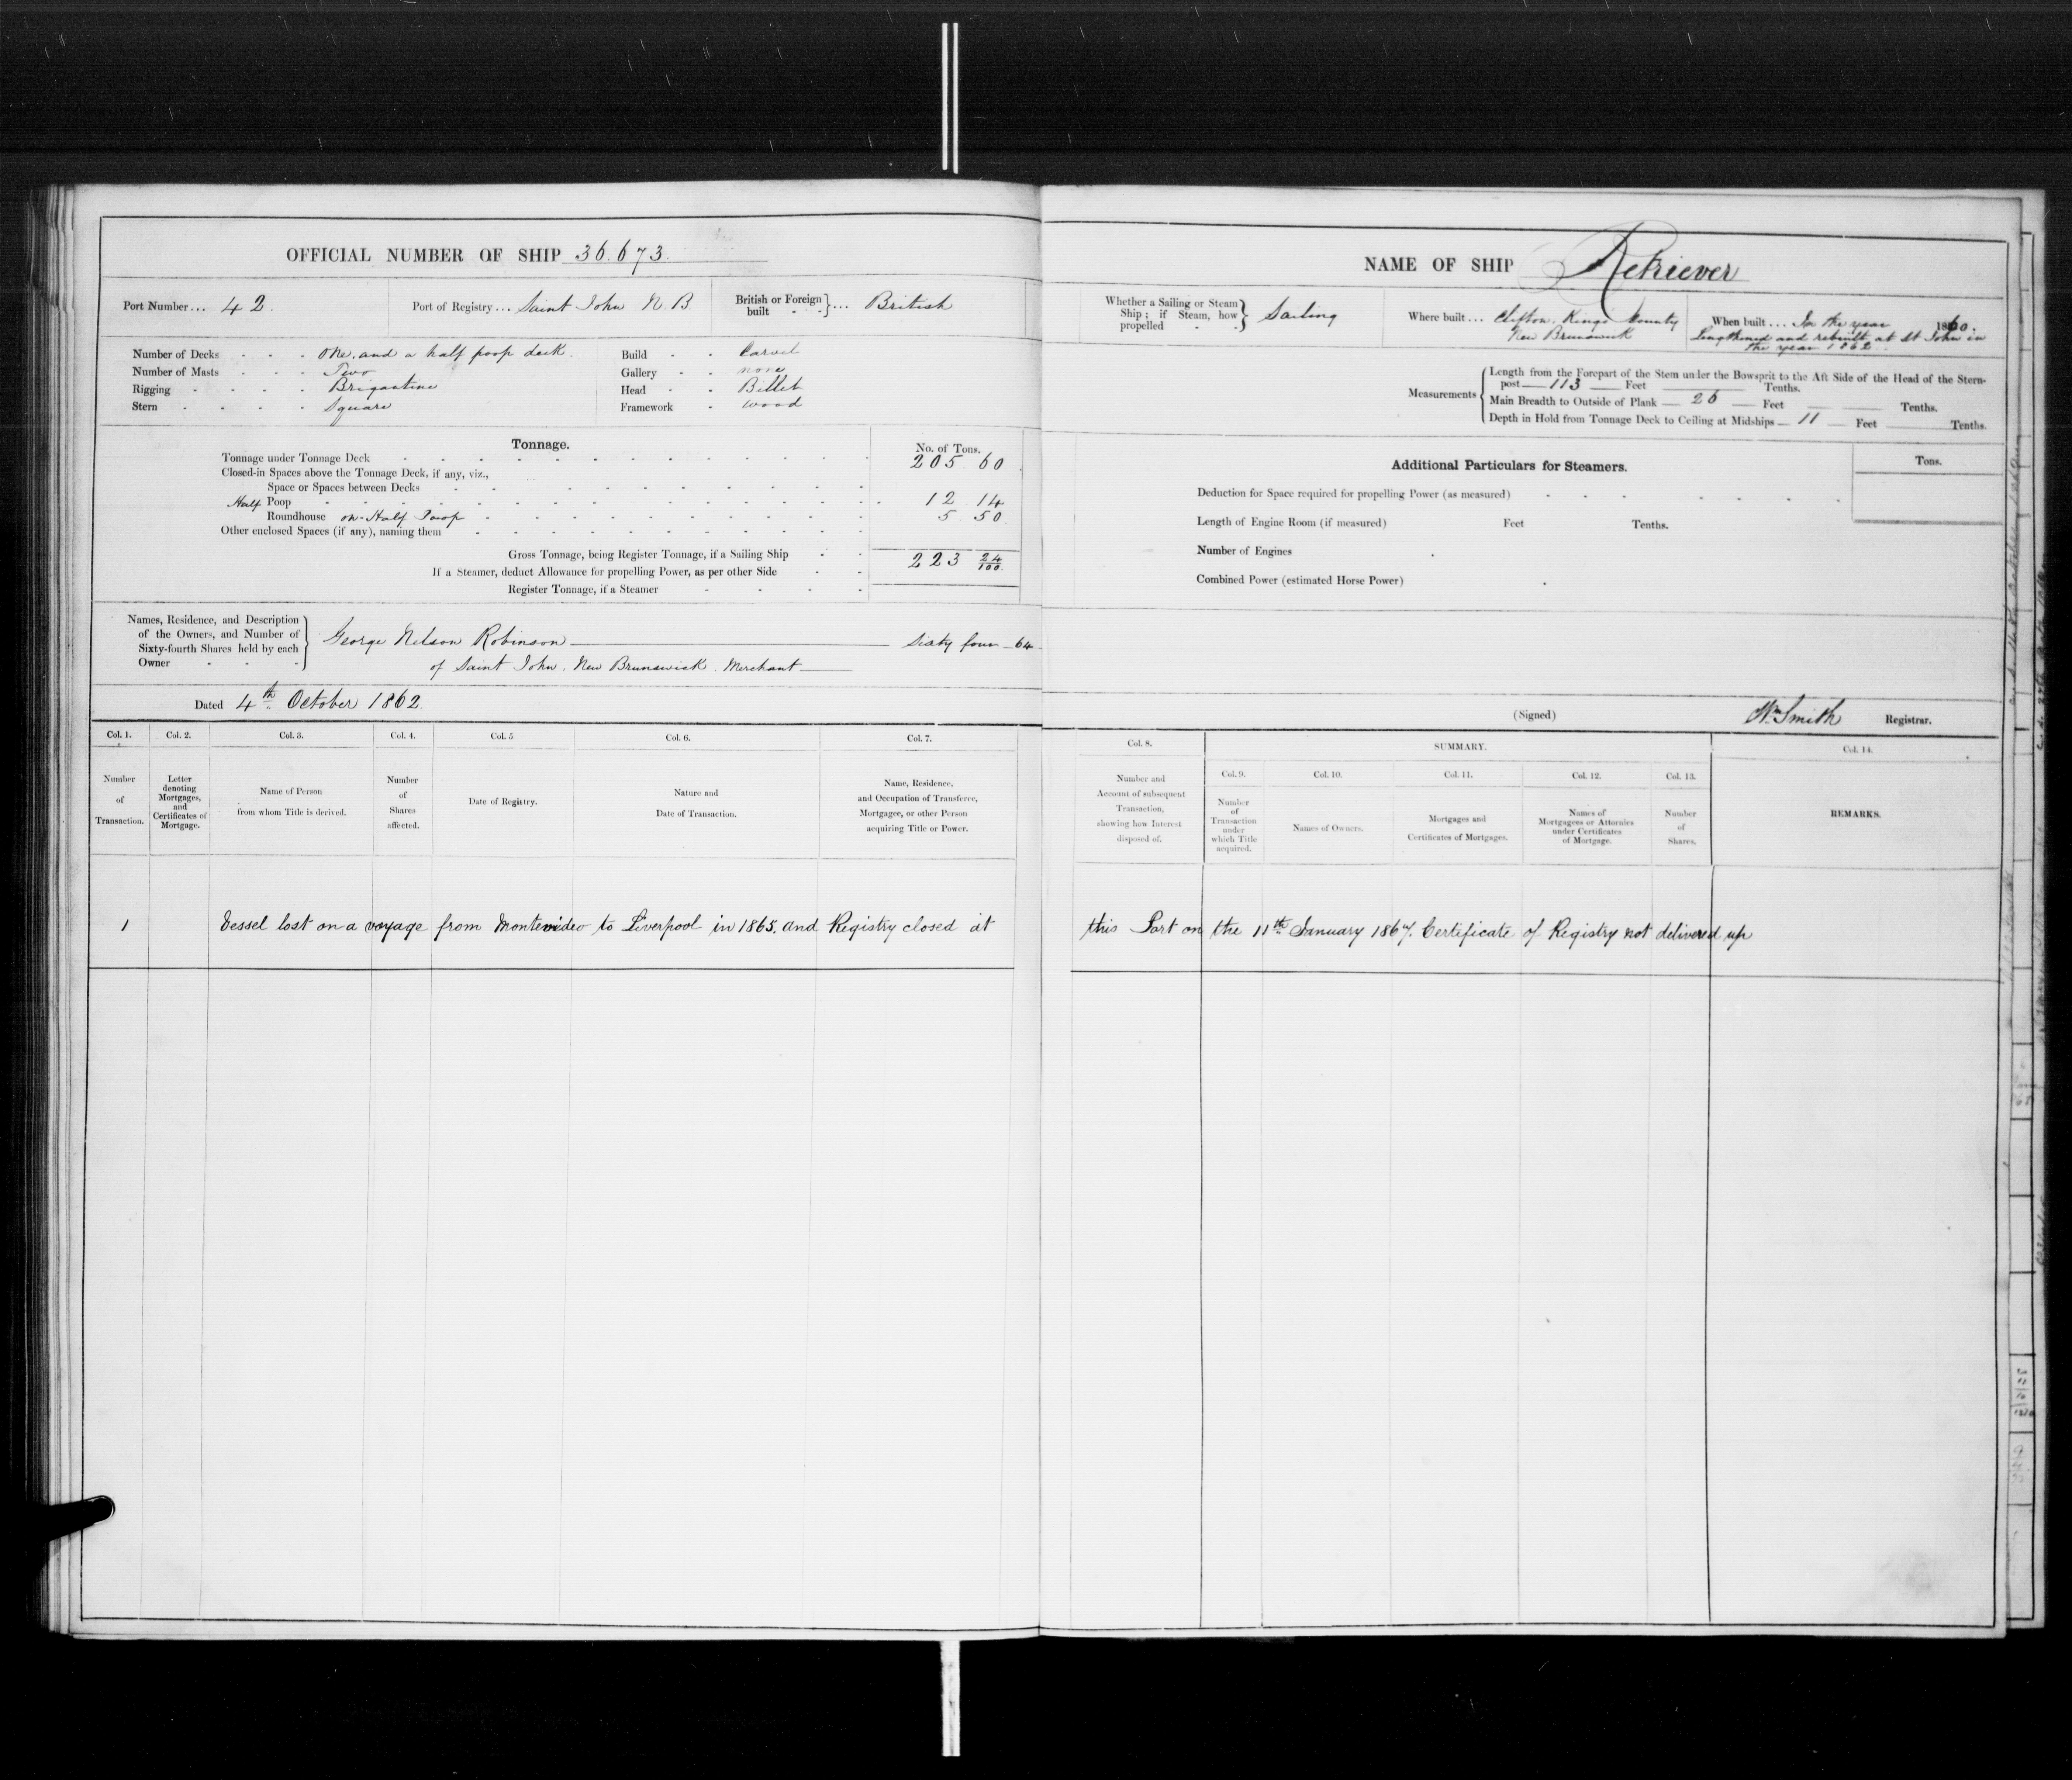 OFFICIAL NUMBER OF SHIP 36.673.
Port Number... 42. Port of Registry... Saint John N.B. British or Foreign built - - } ... British
Number of Decks - - - One, and a half poop deck.
Number of Masts - - - Two
Rigging - - - - Brigantine
Stern - - - - Square
Build - - Carvel
Gallery - - none
Head - - Billet
Framework - wood
Tonnage.
No. of Tons.
Tonnage under Tonnage Deck 205 60
Closed-in Spaces above the Tonnage Deck, if any, viz.,
Space or Spaces between Decks
Half Poop 12 14
Roundhouse on Half Poop 5 50
Other enclosed Spaces (if any), naming them
Gross Tonnage, being Register Tonnage, if a Sailing Ship 223 24/100
If a Steamer, deduct Allowance for propelling Power, as per other Side
Register Tonnage, if a Steamer
Names, Residence, and Description
of the Owners, and Number of
Sixty-fourth Shares held by each
Owner
George Nelson Robinson Sixty four 64
of Saint John, New Brunswick, Merchant
Dated 4th October 1862.
Col. 1. Col. 2. Col. 3. Col. 4. Col. 5 Col. 6. Col. 7.
Number of Transaction.
Letter denoting Mortgages, and Certificates of Mortgage.
Name of Person from whom Title is derived.
Number of Shares affected.
Date of Registry.
Nature and Date of Transaction.
Name, Residence, and Occupation of Transferee, Mortgagee, or other Person acquiring Title or Power.
1 Vessel lost on a voyage from Montevideo to Liverpool in 1865. and Registry closed at
NAME OF SHIP Retriever
Whether a Sailing or Steam Ship; if Steam, how propelled - - } Sailing
Where built... Clifton, Kings County
New Brunswick
When built... In the year 1860.
Lengthened and rebuilt at St John in
the year 1862.
Measurements
Length from the Forepart of the Stem under the Bowsprit to the Aft Side of the Head of the Stern-
post 113 Feet Tenths.
Main Breadth to Outside of Plank 26 Feet Tenths.
Depth in Hold from Tonnage Deck to Ceiling at Midships 11 Feet Tenths.
Additional Particulars for Steamers.
Tons.
Deduction for Space required for propelling Power (as measured)
Length of Engine Room (if measured) Feet Tenths.
Number of Engines
Combined Power (estimated Horse Power)
(Signed) Wm Smith Registrar.
Col. 8. SUMMARY. Col. 14.
Col. 9. Col. 10. Col. 11. Col. 12. Col. 13.
Number and Account of subsequent Transaction, showing how Interest disposed of.
Number of Transaction under which Title acquired.
Names of Owners.
Mortgages and Certificates of Mortgages.
Names of Mortgagees or Attornies under Certificates of Mortgage.
Number of Shares.
REMARKS.
this Port on the 11th January 1867. Certificate of Registry not delivered up